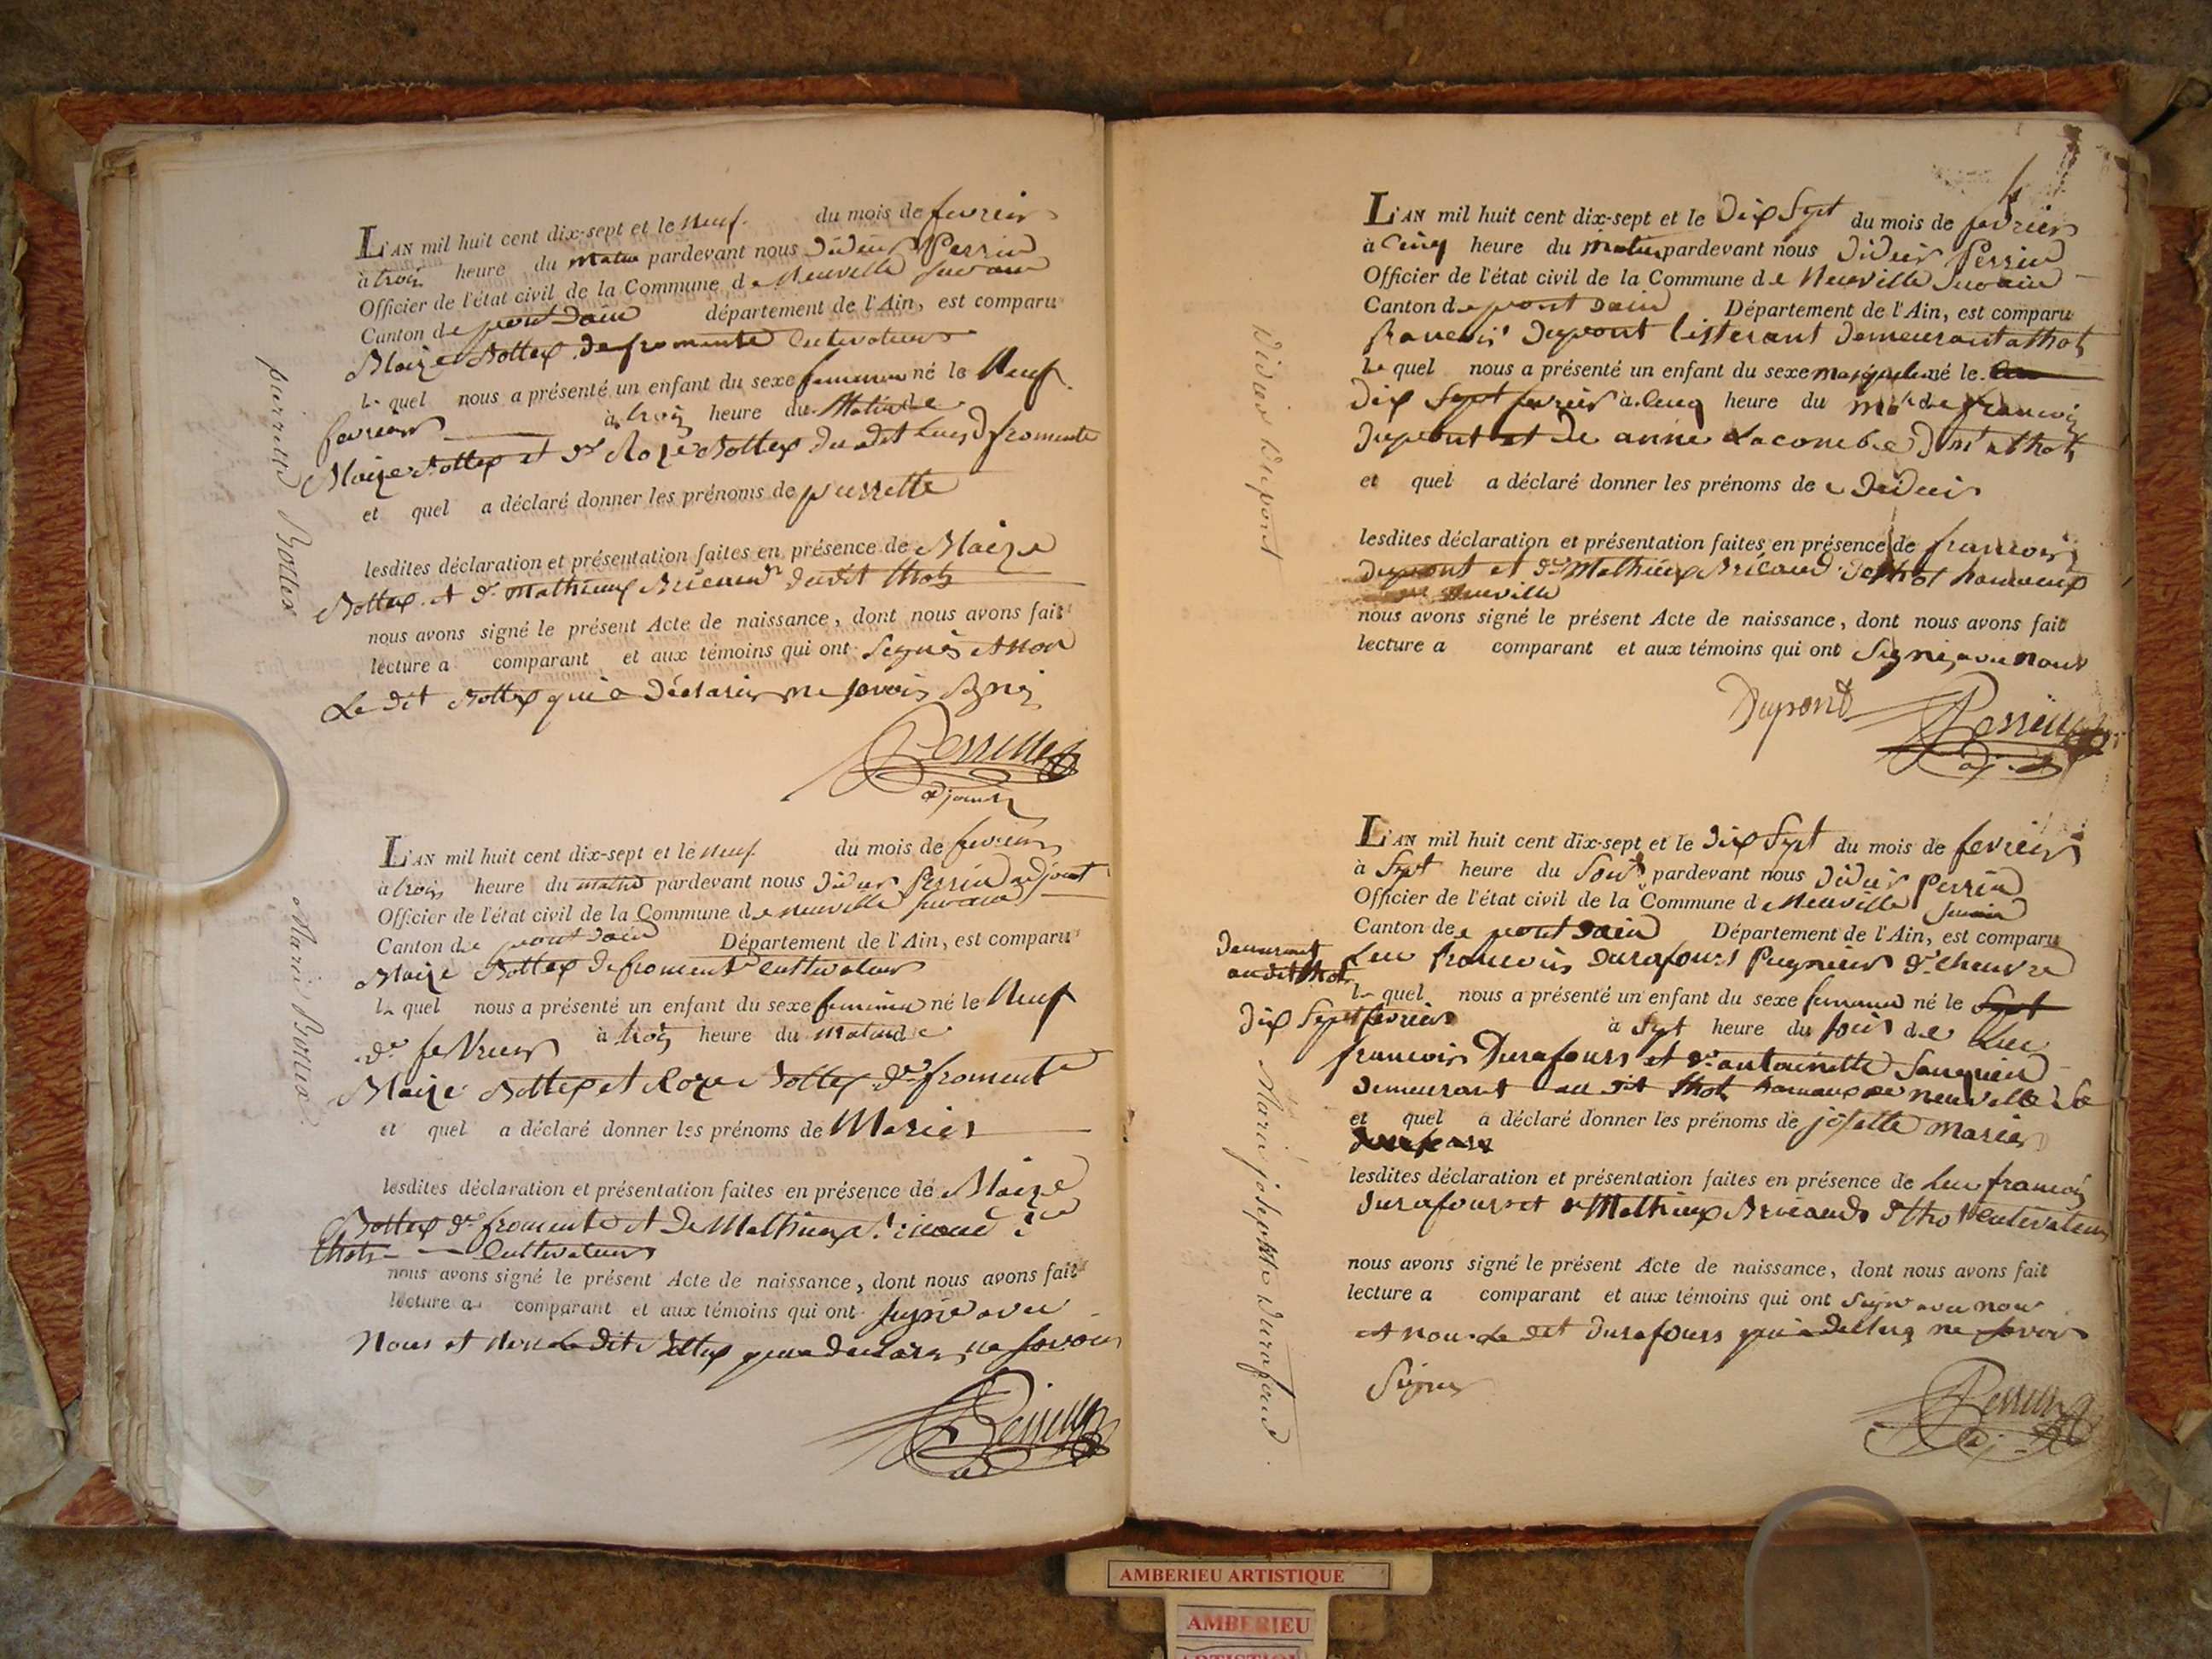 L'AN mil huit cent dix-sept et le neuf du mois de fevrier
à trois heure du matin pardevant nous Didier Perrin
Officier de l'état civil de la Commune de Neuville sur ain
Canton de pont dain département de l'Ain, est comparu
Blaize Bottex de fromente Cultivateur
le quel nous a présenté un enfant du sexe feminin né le Neuf
fevrier à trois heure du Matin de
Blaize Bottex et de Roze Bottex du dit lieu de fromente
et quel a déclaré donner les prénoms de pierrette
lesdites déclaration et présentation faites en présence de Blaize
Bottex et de mathieux Bricaud dudit thol
nous avons signé le présent Acte de naissance, dont nous avons fait
lecture a comparant et aux témoins qui ont Signés et non
Le dit Bottex qui a déclarer ne savoir signer
Perrin
adjoint
pierrette Bottex
L'AN mil huit cent dix-sept et le neuf du mois de fevrier
à trois heure du matin pardevant nous Didier Perrin adjoint
Officier de l'état civil de la Commune de neuville sur ain
Canton de pont dain Département de l'Ain, est comparu
Blaize Bottex de fromente Cultivateur
le quel nous a présenté un enfant du sexe feminin né le Neuf
de fevrier à trois heure du Matin de
Blaize Bottex et Roze Bottex de fromente
et quel a déclaré donner les prénoms de Marie
lesdites déclaration et présentation faites en présence de Blaize
Bottex de fromente et de Mathieux Bricaud de
thol Cultivateur
nous avons signé le présent Acte de naissance, dont nous avons fait
lecture a comparant et aux témoins qui ont signé avec
Nous et Non Le dit Bottex qui a declarer ne savoir
Perrin
ad
Marie Bottex
L'AN mil huit cent dix-sept et le Dix Sept du mois de fevrier
à Cinq heure du matin pardevant nous Didier Perrin
Officier de l'état civil de la Commune de Neuville sur ain
Canton de pont dain Département de l'Ain, est comparu
francois Dupont demeurant a thol
le quel nous a présenté un enfant du sexe masqulin né le
dix Sept fevrier à Cinq heure du matin de francois
Dupont et de anne Lacombe a thol
et quel a déclaré donner les prénoms de Didier
lesdites déclaration et présentation faites en présence de francois
dupont et de Mathieux Bricaud de thol hameaux
de neuville
nous avons signé le présent Acte de naissance, dont nous avons fait
lecture a comparant et aux témoins qui ont Signé avec nous
Dupont Perrin
adj
Didier Dupont
L'AN mil huit cent dix-sept et le Dix Sept du mois de fevrier
à Sept heure du Soir pardevant nous Didier Perrin
Officier de l'état civil de la Commune de Neuville sur ain
Canton de pont dain Département de l'Ain, est comparu
Luc francois Durafours Pegneur de chanvre
demeurant
au dit thol
le quel nous a présenté un enfant du sexe feminin né le Sept
dix Sept fevrier à Sept heure du soir de Luc
francois Durafours et de antoinette
demeurant au dit thol hameaux de neuville
et quel a déclaré donner les prénoms de josette marie
lesdites déclaration et présentation faites en présence de Luc francois
Durafours et de Mathieux Bricaud de thol Cultivateur
nous avons signé le présent Acte de naissance, dont nous avons fait
lecture a comparant et aux témoins qui ont Signé avec nous
et non Le dit Durafours qui a declaré ne savoir
Signer
Perrin
adj
Marie josephte Durafour
AMBERIEU ARTISTIQUE
AMBERIEU
ARTISTIQUE